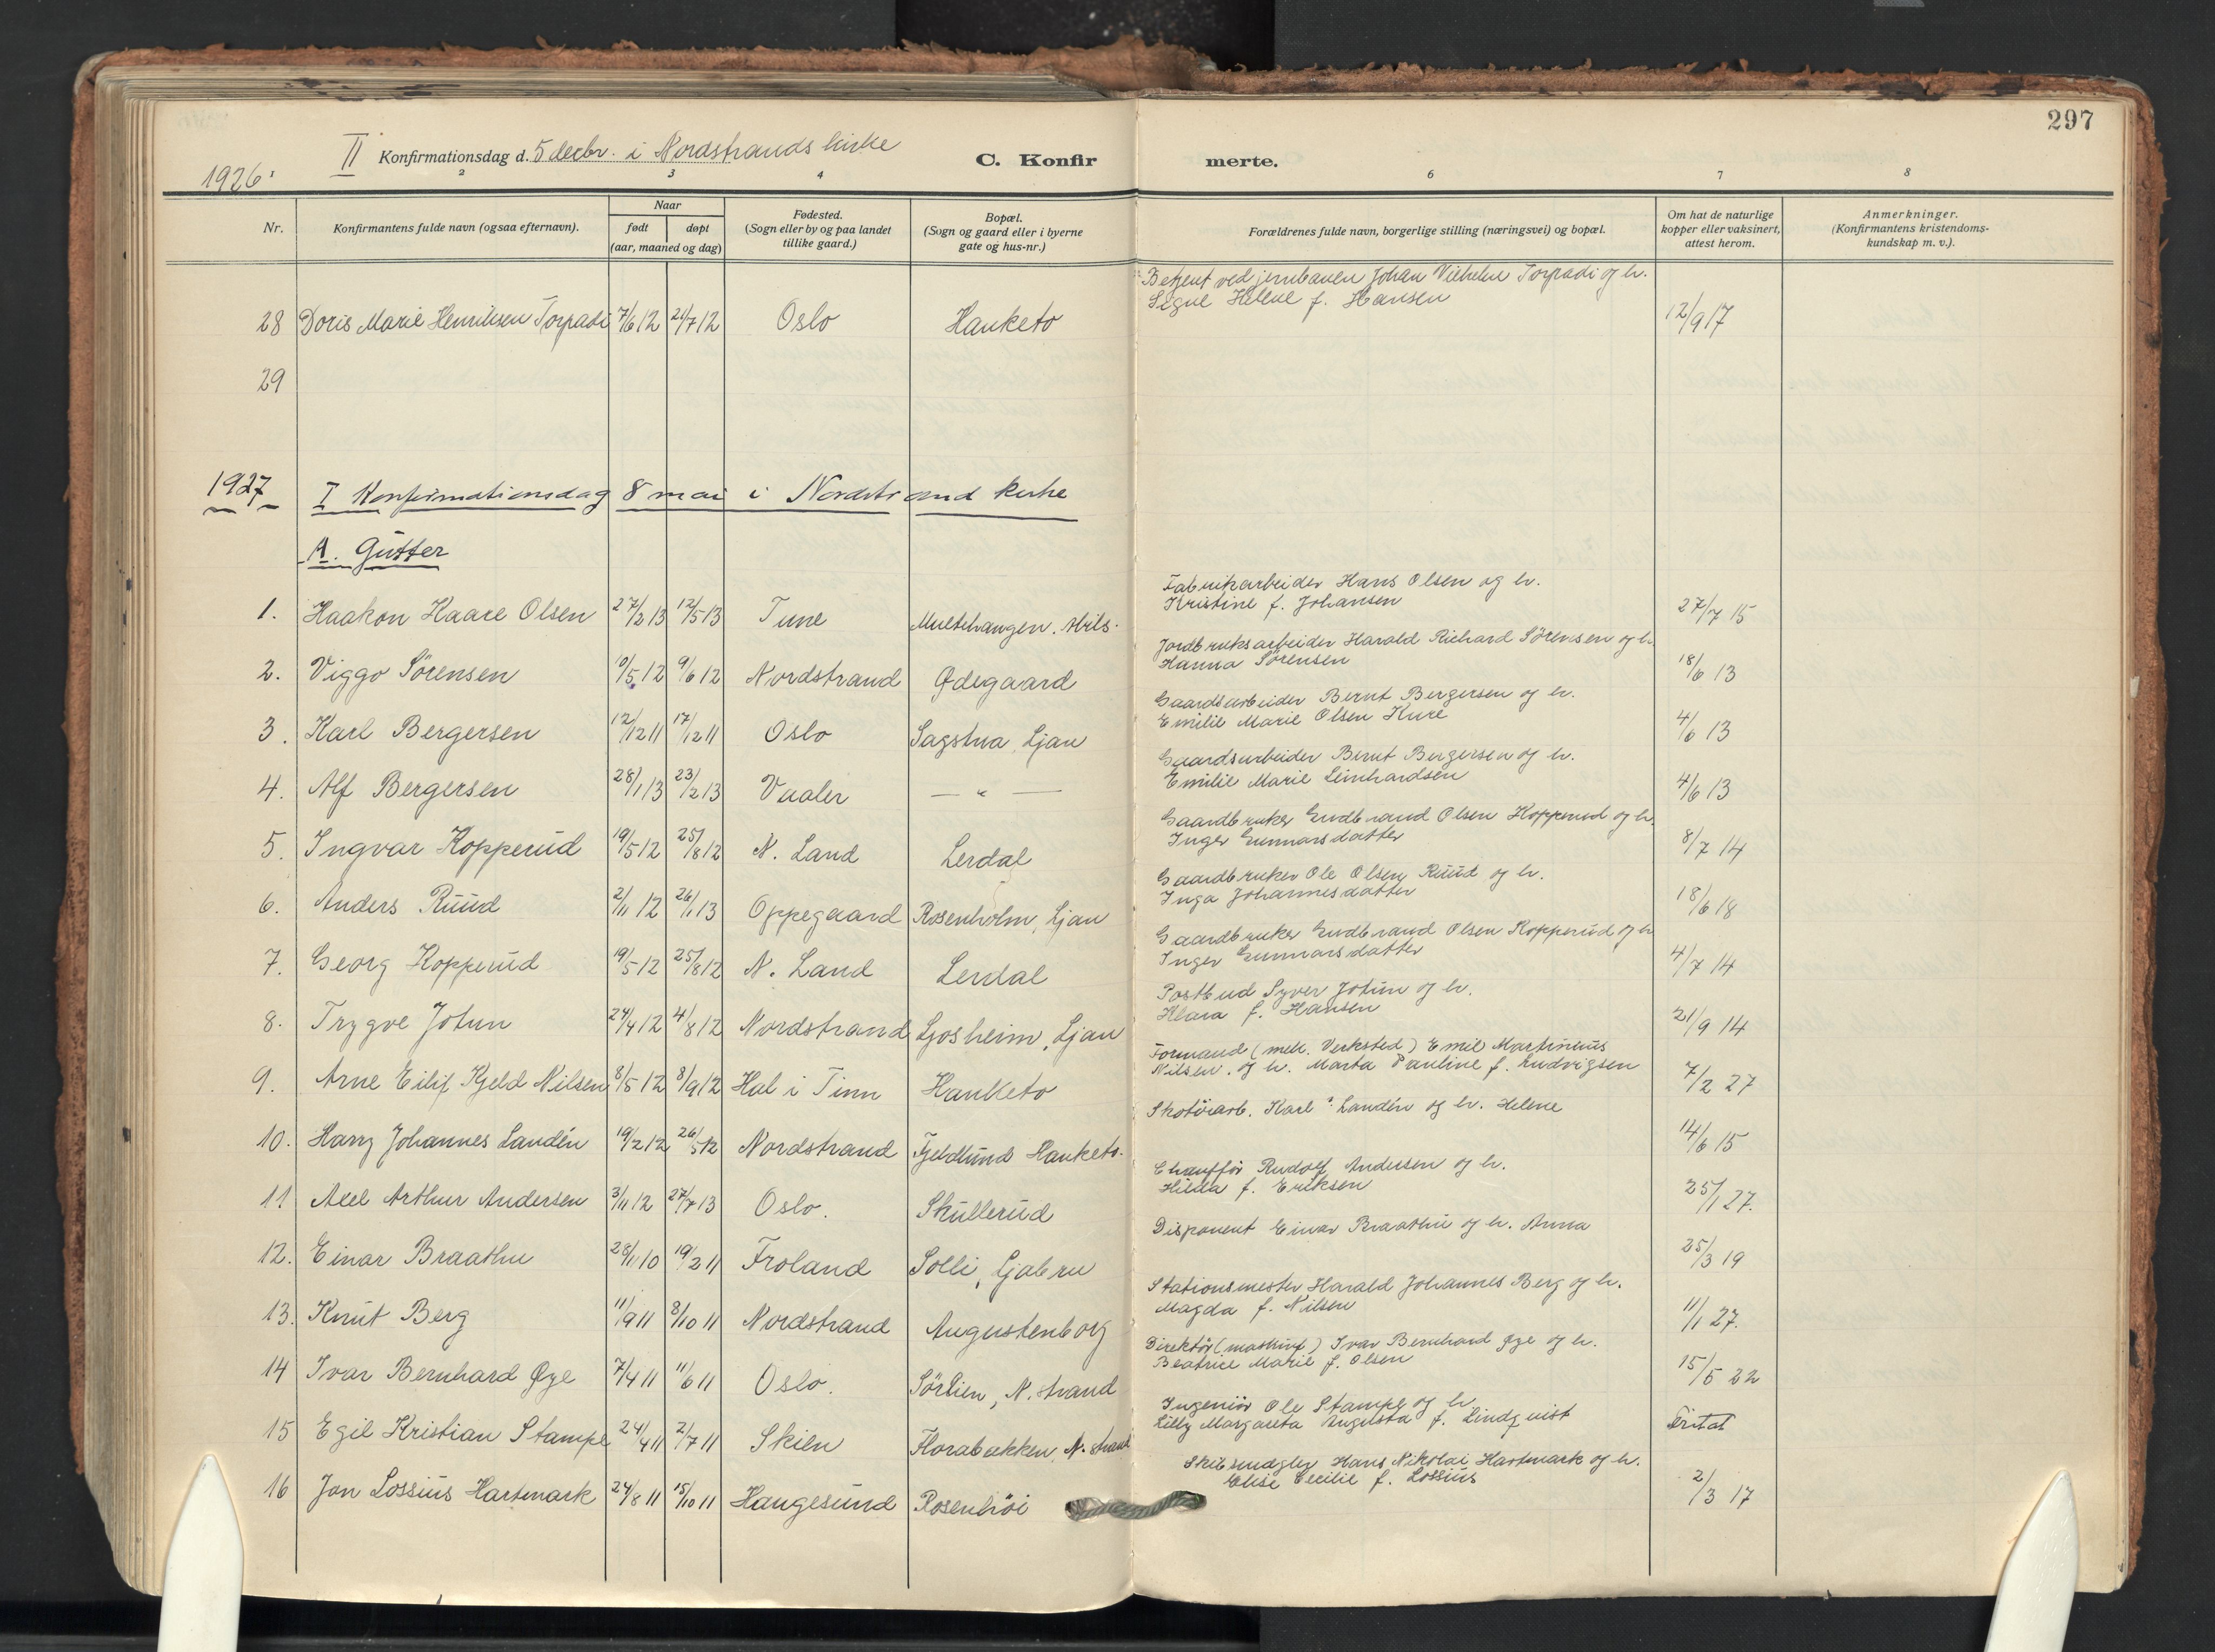 297
II Konfirmationsdag d. 5 decbr. i Nordstrands kirke C. Konfirmerte.
1926
1 2 3 4 6 7 8
Nr. Konfirmantens fulde navn (ogsaa efternavn). Naar født døpt (aar, maaned og dag) Fødested. (Sogn eller by og paa landet tillike gaard.) Bopæl. (Sogn og gaard eller i byerne gate og hus-nr.) Forældrenes fulde navn, borgerlige stilling (næringsvei) og bopæl. Om hat de naturlige kopper eller vaksinert, attest herom. Anmerkninger. (Konfirmantens kristendomskundskap m. v.).
Betjent ved jernbanen Johan Vilhelm Torpadi og h.
Signe Helene f. Hansen
28 Doris Marie Henriksen Torpadi 7/6 12 21/7 12 Oslo Hauketo 12/9 17
29
1927 I Konfirmationsdag 8 mai i Nordstrand kirke
A. Gutter
Fabrikarbeider Hans Olsen og h.
Kristine f. Johansen
1. Haakon Kaare Olsen 27/2 13 12/5 13 Tune Multehaugen. 27/7 15
Jordbruksarbeider Harald Richard Sørensen og h.
Hanna Sørensen
2. Viggo Sörensen 10/5 12 9/6 12 Nordstrand Ødegaard 18/6 13
Gaardsarbeider Bernt Bergersen og h.
Emilie Marie Olsen Kure
3. Karl Bergersen 12/12 11 17/12 11 Oslo Sagstua, Ljan 4/6 13
Gaardsarbeider Bernt Bergersen og h.
Emilie Marie Leinhardsen
4. Alf Bergersen 28/1 13 23/2 13 Vaaler — " — 4/6 13
Gaardbruker Gudbrand Olsen Kopperud og h.
Inger Gunnarsdatter
5. Ingvar Kopperud 19/5 12 25/8 12 N. Land Lerdal 8/7 14
Gaardbruker Ole Olsen Ruud og h.
Inga Johannesdatter
6. Anders Ruud 2/11 12 26/1 13 Oppegaard Rosenholm, Ljan 18/6 18
Gaardbruker Gudbrand Olsen Kopperud og h
Inger Gunnarsdatter
7. Georg Kopperud 19/5 12 25/8 12 N. Land Lerdal 4/7 14
Postbud Syver Jotun og h.
Klara f. Hansen
8. Trygve Jotun 24/4 12 4/8 12 Nordstrand Ljosheim, Ljan 21/9 14
Formand (mek. Verksted) Emil Martinius
Nilsen. og h. Marta Pauline f. Ludvigsen
9. Arne Eilif Kjeld Nilsen 8/5 12 8/9 12 Hal i Tinn Hauketo 7/2 27
Skotöiarb. Karl Landén og h. Helene
10. Harry Johannes Landén 19/2 12 26/5 12 Nordstrand Fjeldlund Hauketo. 14/6 15
Chaufför Rudolf Andersen og h.
Hilda f. Eriksen
11 Axel Arthur Andersen 3/11 12 27/7 13 Oslo. Skullerud 25/1 27.
Disponent Einar Braathe og h. Anna
12. Einar Braathe 28/11 10 19/2 11 Froland Solli, Ljabru 25/3 19
Stationsmester Harald Johannes Berg og h.
Magda f. Nilsen
13. Knut Berg 11/9 11 8/10 11 Nordstrand Augustenborg 11/1 27.
Direktör (maskinf) Ivar Bernhard Øye og h.
Beatrice Marie f. Olsen
14 Ivar Bernhard Øye 7/4 11 11/6 11 Oslo. Sörlien, N. strand 15/5 22
Ingeniör Ole Stampe og h
Lilly Margareta Augusta f. Lindqvist
15 Egil Kristian Stampe 24/4 11 2/7 11 Skien Florabakken, N. strand Fritat
Skibsmægler Hans Nikolai Hartmark og h.
Elise Cecilie f. Lossius
16 Jan Lossius Hartmark 24/8 11 15/10 11 Haugesund Rosenhöi 2/3 17